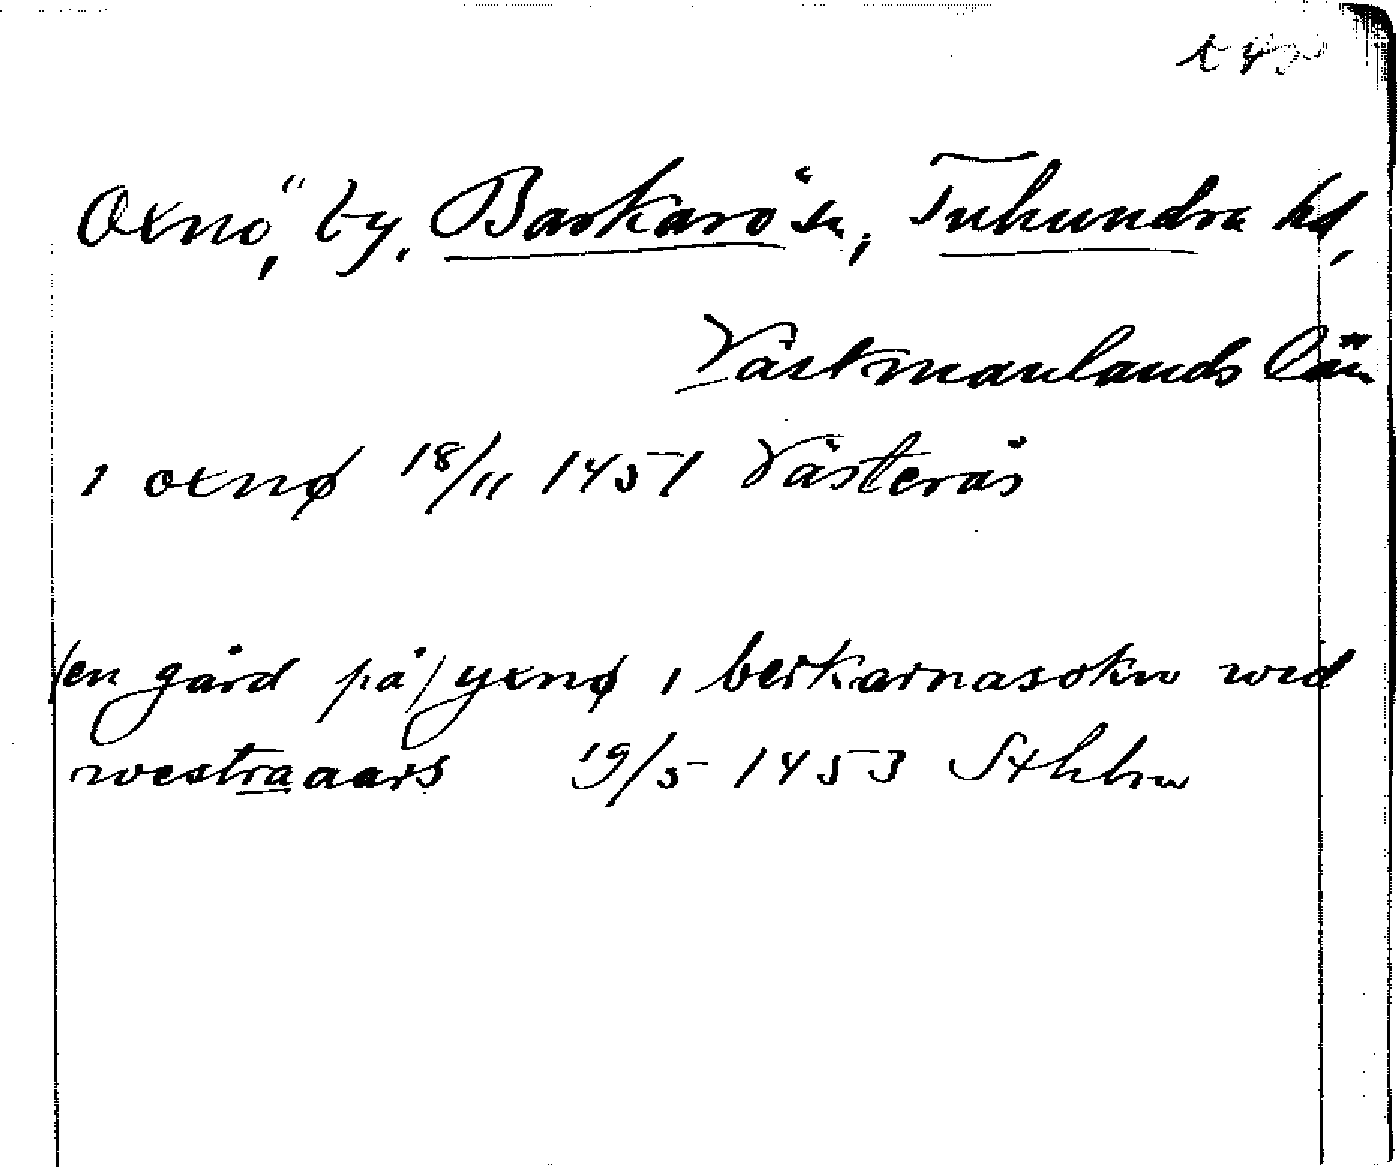 Oxnö, by, Barkarö sn, Tuhundra hd,
Västmanlands län
i oxnø 18/11 1451 Västerås
/en gård på/ yxnø i berkarnasokn wid
westraaars 19/5 1453 Sthlm